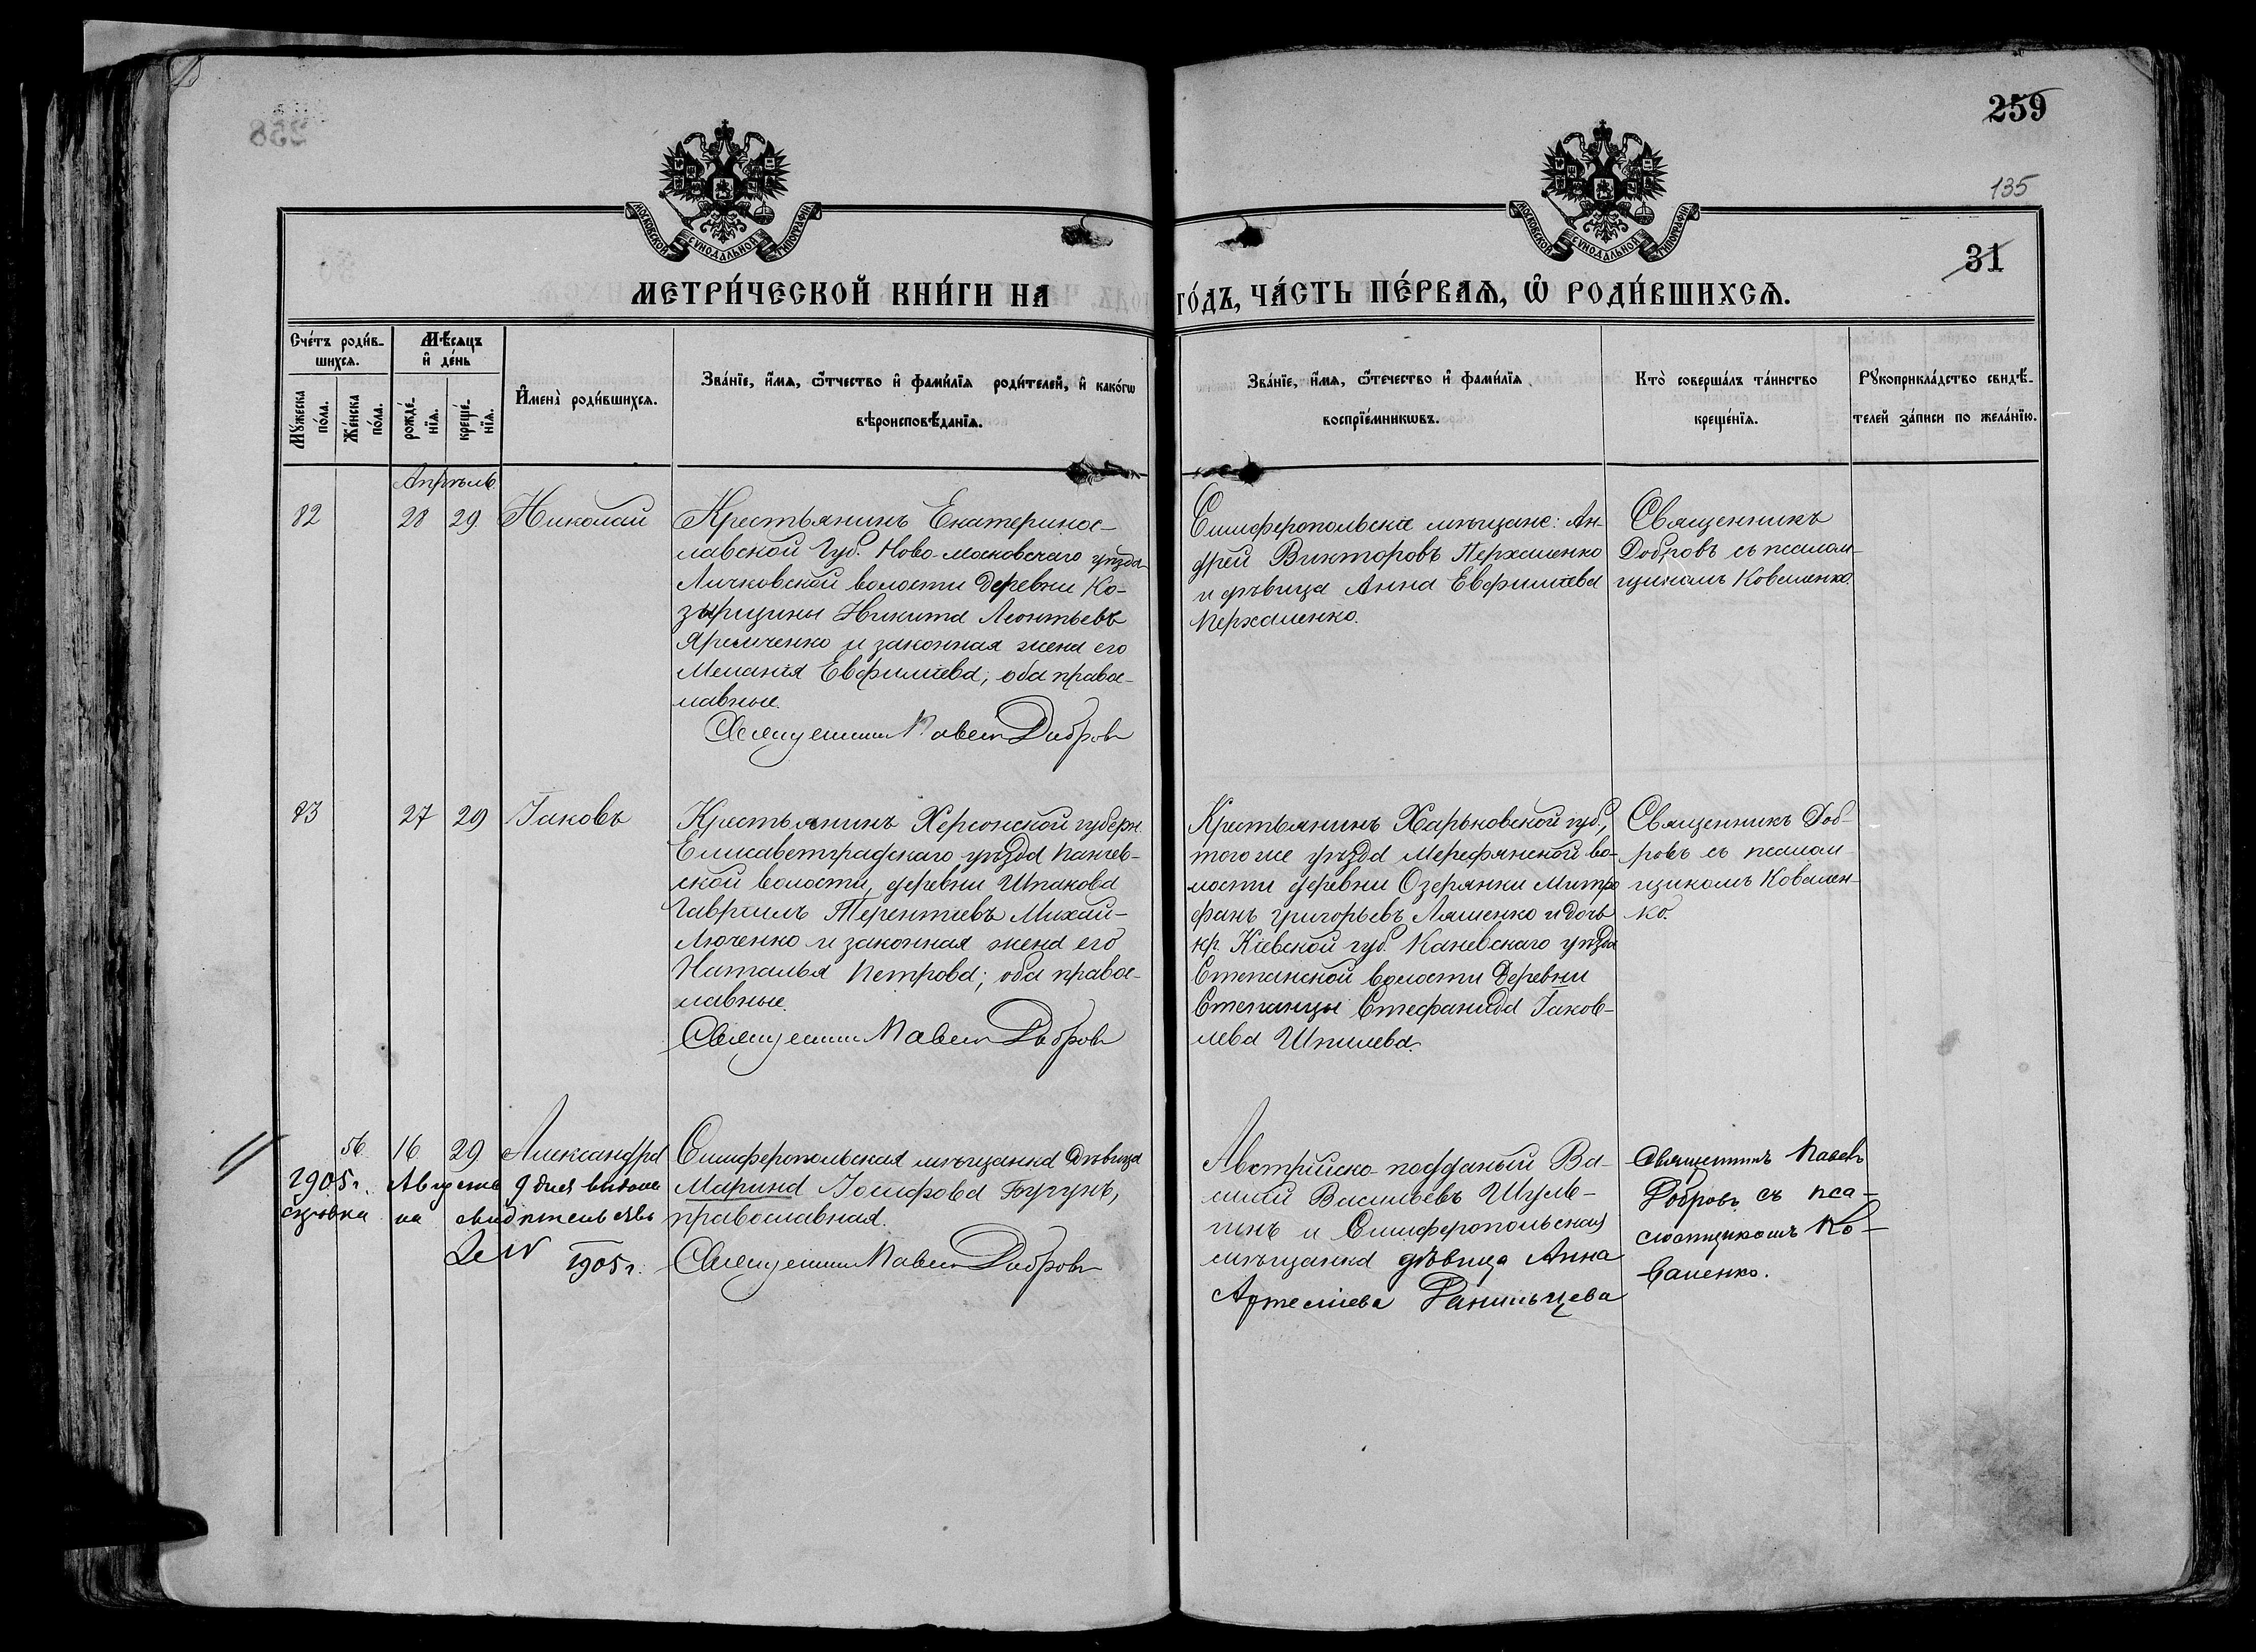 259
135
31
МОСКОВСКОЙ СУНОДАЛЬНОЙ ТИПОГРАФІИ
МОСКОВСКОЙ СУНОДАЛЬНОЙ ТИПОГРАФІИ
МЕТРИ́ЧЕСКОЙ КНИ́ГИ НА ГО́ДЪ, ЧА́СТЬ ПЕ́РВАѦ, Ѡ РОДИ́ВШИХСѦ.
Сче́тъ роди́в-
шихсѧ.
Мѣ́сѧцъ
и҆ де́нь
Мꙋ́жеска
по́ла.
Же́нска
по́ла.
рожде́-
нїѧ.
креще́-
нїѧ.
И҆мена̀ роди́вшихсѧ.
Зва́нїе, и҆́мѧ, ѻ҆́тчество и҆ фами́лїѧ роди́телей, и҆ како́гѡ
вѣроисповѣ́данїѧ.
Зва́нїе, и҆́мѧ, ѻ҆́течество и҆ фами́лїѧ
воспрїе́мникѡвъ.
Кто̀ соверша́лъ та́инство
креще́нїѧ.
Рꙋкоприкла́дство свидѣ́-
телей за́писи по жела́нїю.
Апрѣль
82 28 29 Николай
Крестьянинъ Екатеринос-
лавской Губ. Ново-московскаго уѣзда
Личковской волости Деревни Ко-
зырщины Никита Леонтьевъ
Яремченко и законная жена его
Меланія Евфиміева; оба правос-
лавные.
Священникъ Павелъ Добровъ
Симферопольскіе мѣщане: Ан-
дрей Викторовъ Перхаленко
и дѣвица Анна Евфиміева
Перхаленко.
Священникъ
Добровъ съ псалом-
щикомъ Коваленко.
83 27 29 Іаковъ
Крестьянинъ Херсонской губерн.
Елисаветградскаго уѣзда Панчев-
ской волости, деревни Шпакова
Гавріилъ Терентіевъ Михай-
люченко и законная жена его
Наталья Петрова; оба правос-
лавные.
Священникъ Павелъ Добровъ
Крестьянинъ Харьковской губ.,
того же уѣзда Мерефянской во-
лости деревни Озерянки Митро
фанъ Григорьевъ Ляшенко и дочь
кр. Кіевской губ. Каневскаго уѣзда
Степанской волости Деревни
Степанцы Стефанида Іаков-
лева Шпилева.
Священникъ Доб-
ровъ съ псалом-
щикомъ Ковален-
ко.
56 16 29 Александра
1905 г. Августа 9 дня выдано
на свидѣтельство
№ 1905 г.
Симферопольская мѣщанка Дѣвица
Марина Іосифова Бугунъ,
православная.
Священникъ Павелъ Добровъ
Австрійско-подданый Ва-
силій Васильевъ Шуль-
гинъ и Симферопольская
мѣщанка дѣвица Анна
Артеміева Данильчева
Священникъ Павелъ
Добровъ съ пса-
ломщикомъ Ко-
валенко.